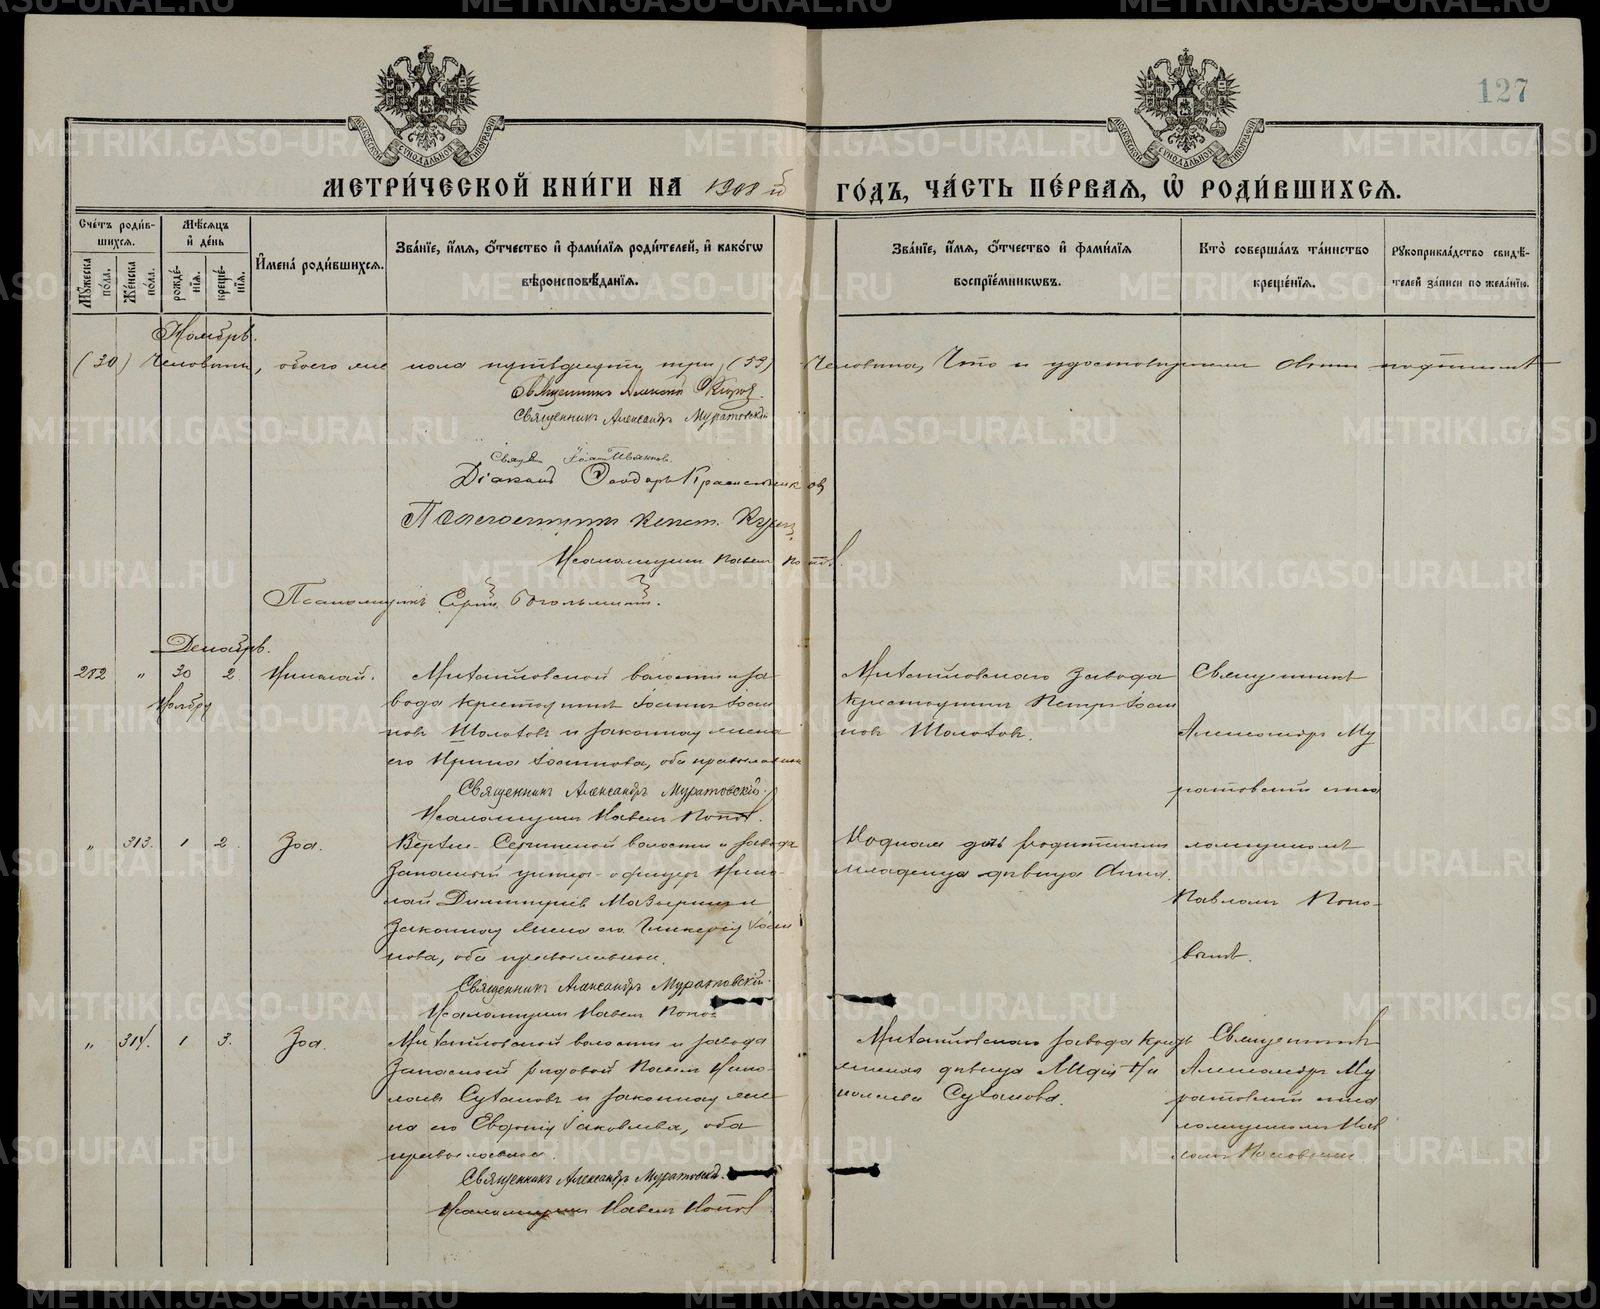 127
МЕТРИ́ЧЕСКОЙ КНИ́ГИ НА 1908 й ГО́ДЪ, ЧА́СТЬ ПЕ́РВАЯ, Ѡ РОДИ́ВШИХСЯ.
Сче́тъ роди́в-
шихся.
Мꙋ́жеска по́ла.
Же́нска по́ла.
Мѣ́сяцъ и де́нь
рожде́-нїя.
креще́-нїя.
Имена́ роди́вшихся.
Зва́нїе, и́мя, о́тчество и фами́лїя роди́телей, и како́гѡ
вѣроисповѣ́данїя.
Зва́нїе, и́мя, о́тчество и фами́лїя
воспрїе́мникѡвъ.
Кто̀ соверша́лъ та́инство
креще́нїя.
Рꙋкоприкла́дство свидѣ́-
телей за́писи по жела́нїю.
Ноябрь.
(30) человѣкъ, обоего же пола пятьдесятъ три (53) человѣка, что и удостовѣряемъ своимъ подписомъ
Священникъ Алексѣй
Священникъ Александръ Муратовскій
Свящ. Іоаннъ Ивановъ.
Діаконъ Ѳеодоръ Красносельников
Псаломщикъ Конст.
Псаломщикъ Павелъ Поповъ.
Псаломщикъ Серг. Богольпитъ.
Декабрь.
292 " 30 2 Николай.
Ноября
Михайловской волости и за
вода крестьянинъ Іоаннъ Іоан
новъ Шолоховъ и законная жена
его Ирина Іоаннова, оба православнаи
Священникъ Александръ Муратовскій.
Псаломщикъ Павелъ Поповъ.
Михайловского завода
крестьянинъ Петръ Іоан
новъ Шолоховъ.
Священникъ
Александръ Му
ратовскій съ пса
" 313. 1 2. Зоя.
Верхне-Сергинской волости и завода
запасный унтеръ-офицеръ Нико-
лай Димитріевъ Мазыринъ и
законная жена его Гликерія Іоан
нова, оба православнаи.
Священникъ Александръ Муратовскій.
Псаломщикъ Павелъ Попов
Родная дочь родителями
младенца дѣвица Анна.
ломщикомъ
Павломъ Попо-
вымъ.
" 314. 1 3. Зоя.
Михайловской волости и завода
запасный рядовой Павелъ Нико-
лаевъ Сухановъ и законная же-
на его Евдокія Іаковлева, оба
православнаи.
Священникъ Александръ Муратовскій.
Псаломщикъ Павелъ Поповъ
Михайловского завода кресть
янская дѣвица Лидія Ни
колаева Суханова.
Священникъ
Александръ Му
ратовскій съ пса
ломщикомъ Пав
ломъ Поповымъ
METRIKI.GASO-URAL.RU